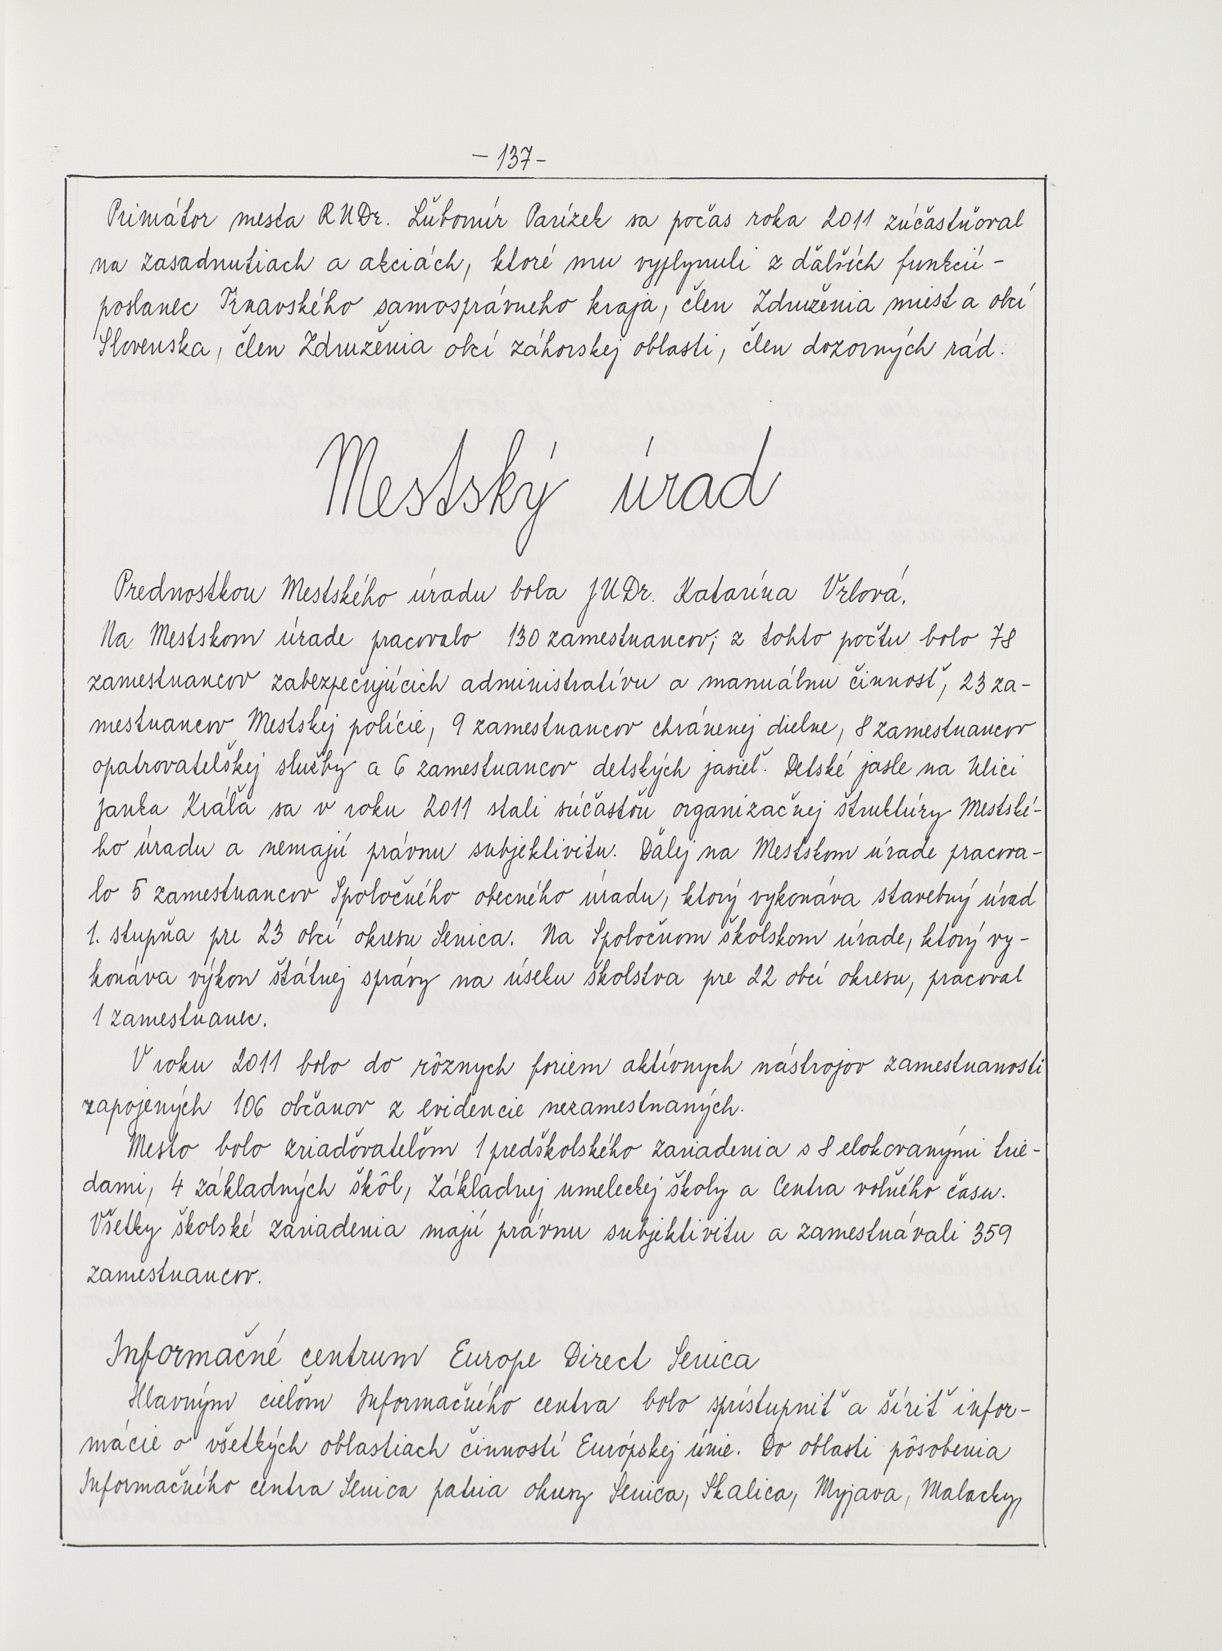 - 137 -
Primátor mesta RNDr. Ľubomír Parízek sa počas roka 2011 zúčastňoval
na zasadnutiach a akciách, ktoré mu vyplynuli z ďalších funkcií -
poslanec Trnavského samosprávneho kraja, člen Združenia miest a obcí
Slovenska, člen Združenia obcí záhorskej oblasti, člen dozorných rád.
Mestský úrad
Prednostkou Mestského úradu bola JUDr. Katarína Vrlová.
Na Mestskom úrade pracovalo 130 zamestnancov; z tohto počtu bolo 78
zamestnancov zabezpečujúcich administratívu a manuálnu činnosť, 23 za-
mestnancov Mestskej polície, 9 zamestnancov chránenej dielne, 8 zamestnancov
opatrovateľskej služby a 6 zamestnancov detských jaslí. Detské jasle na Ulici
Janka Kráľa sa v roku 2011 stali súčasťou organizačnej štruktúry Mestské-
ho úradu a nemajú právnu subjektivitu. Ďalej na Mestskom úrade pracova-
lo 5 zamestnancov Spoločného obecného úradu, ktorý vykonáva stavebný úrad
1. stupňa pre 23 obcí okresu Senica. Na Spoločnom školskom úrade, ktorý vy-
konáva výkon štátnej správy na úseku školstva pre 22 obcí okresu, pracoval
1 zamestnanec.
V roku 2011 bolo do rôznych foriem aktívnych nástrojov zamestnanosti
zapojených 106 občanov z evidencie nezamestnaných.
Mesto bolo zriaďovateľom 1 predškolského zariadenia s 8 elokovanými trie-
dami, 4 základných škôl, Základnej umeleckej školy a Centra voľného času.
Všetky školské zariadenia majú právnu subjektivitu a zamestnávali 359
zamestnancov.
Informačné centrum Europe Direct Senica
Hlavným cieľom Informačného centra bolo sprístupniť a šíriť infor-
mácie o všetkých oblastiach činností Európskej únie. Do oblasti pôsobenia
Informačného centra Senica patria okresy Senica, Skalica, Myjava, Malacky,